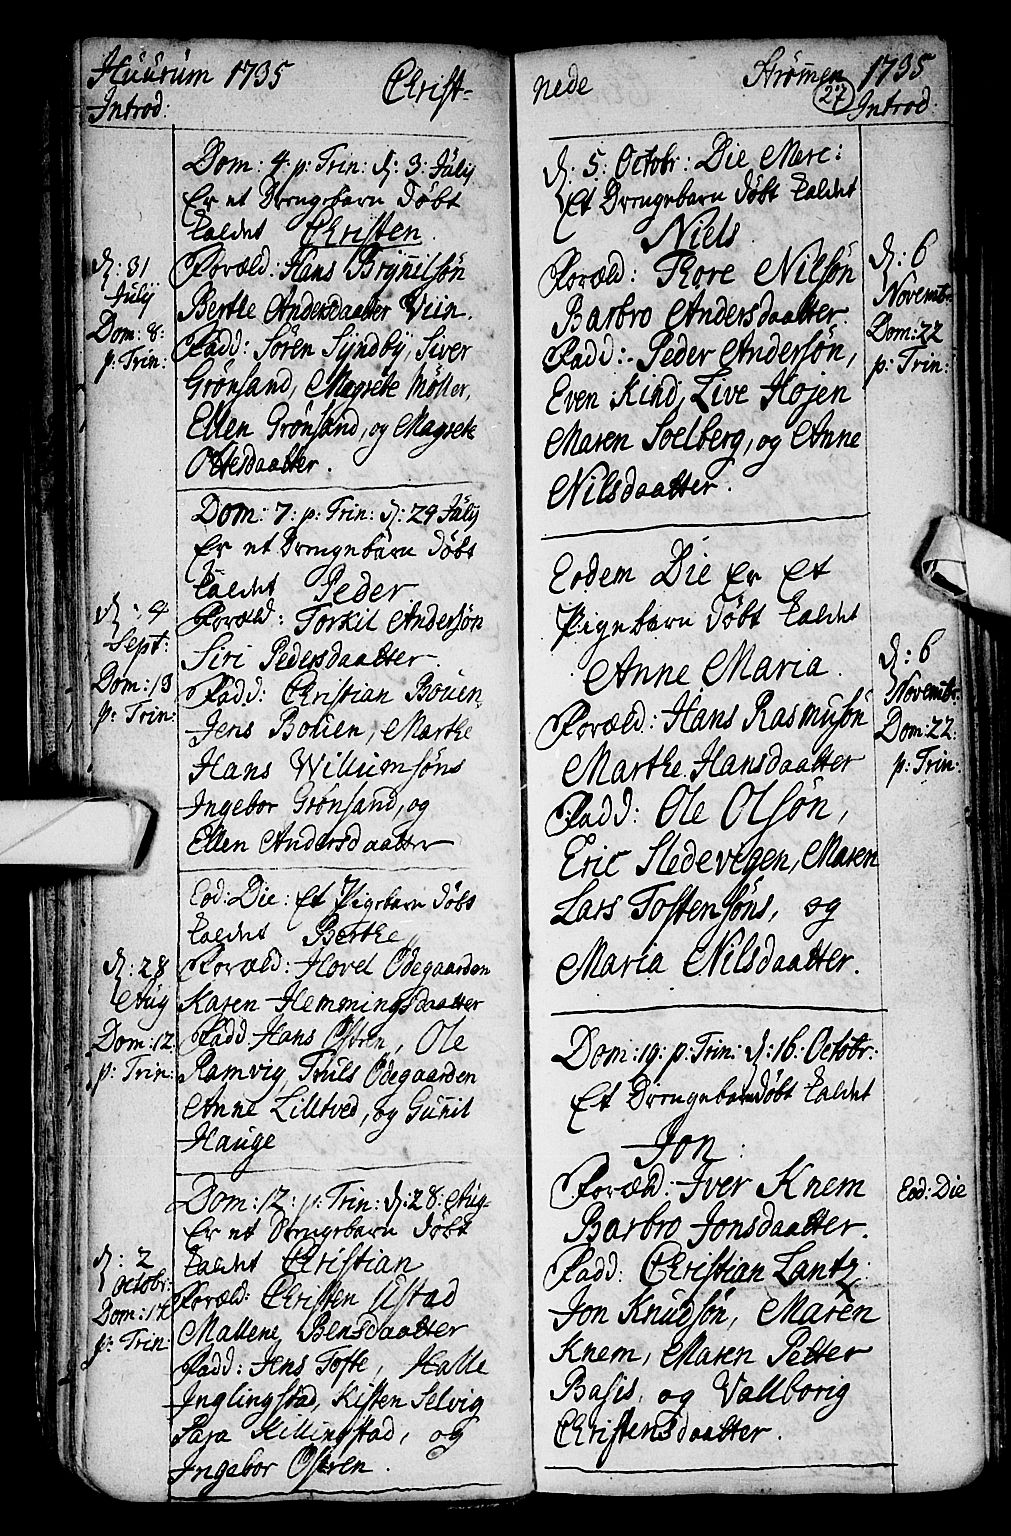 Huurum 1735 Christ-
Introd:
Dom: 4. p: Trin: d: 3: July
Er et Drengebarn døbt
kaldet Christen.
d: 31
July
Dom: 8:
p: Trin:
Foræld: Hans Brynnilsøn
Berthe Andersdaatter Viin.
Fadd: Søren Syndby, Siver
Grønsand, Magrete Møller,
Ellen Grønsand, og Magrete
Ottesdaatter.
Dom: 7: p: Trin: d: 29 July
Er et Drengebarn døbt
kaldet Peder.
d: 4
Sept:
Dom: 13
p: Trin:
Foræld: Torkil Andersøn
Siri Pedersdaatter.
Fadd: Christian Bouen,
Jens Bouen, Marthe
Hans Willumsøns
Ingebor Grønsand, og
Ellen Andersdaatter
Eod: Die: Et Pigebarn døbt
kaldet Berthe
d: 28
Aug
Dom: 12
p: Trin:
Foræld: Hovel Odegaarden
Karen Hemmingsdaatter
Fadd: Hans Østren, Ole
Ramvig, Truls Odegaarden
Anne Lilltved, og Gunil
Hauge
Dom: 12: p: Trin: d: 28: Aug-
Er et Drengebarn døbt
kaldet Christian
d: 2
Octobr:
Dom: 17
p: Trin:
Foræld: Christen Ustad
Mallene Bensdaatter
Fadd: Jens Tofte, Halle
Inglingstad, Kisten Selvig
Sara Killingstad, og
Ingebor Østren.
nede Strømmen 1735
27
Introd:
d: 5. Octobr: Die Merc:
Et Drengebarn døbt kaldet
Niels.
d: 6
Novembr:
Dom: 22
p: Trin:
Foræld: Tore Nilsøn
Barbro Andersdaatter.
Fadd: Peder Andersøn,
Even Kind, Live Højen
Maren Soelberg, og Anne
Nilsdaatter.
Eodem Die er Et
Pigebarn døbt kaldet
Anne Maria.
d: 6
Novembr:
Dom: 22:
p: Trin:
Foræld: Hans Rasmusøn
Marthe Hansdaatter
Fadd: Ole Olsøn,
Eric Stedevegen, Maren
Lars Tostensøns, og
Maria Nilsdaatter.
Dom: 19: p: Trin: d: 16: Octobr:
Et Drengebarn døbt kaldet
Jon.
Eod: Die
Foræld: Iver Knem
Barbro Jonsdaatter.
Fadd: Christian Lantz
Jon Knudsøn, Maren
Knem, Maren Petter
Basis, og Vallborig
Christensdaatter.